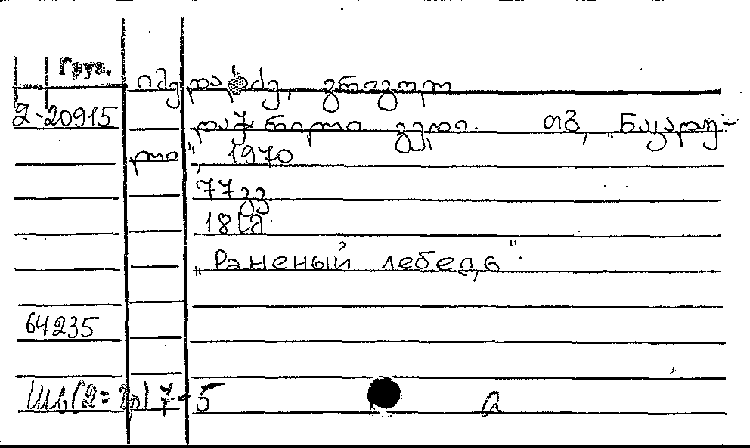 Груз.
იმედაძე, გრიგოლ
2-20915 დაჭრილი გედი. თბ, "ნაკადუ-
ლი", 1970
77 გვ
18 სმ
"Раненый лебедь".
64235
Шв(2=Гр)7-5 а